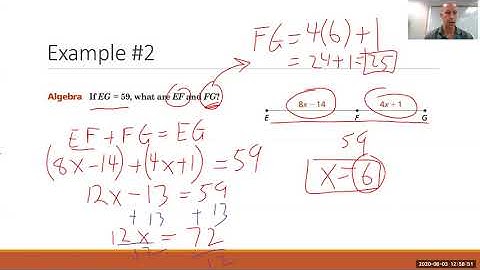 Example #2
FG = 4(6) + 1
= 24 + 1 = 25
Algebra If EG = 59, what are EF and FG?
8x − 14 4x + 1
E F G
EF + FG = EG
59
(8x − 14) + (4x + 1) = 59
x = 6
12x − 13 = 59
+ 13 + 13
12x = 72
12 12
2020-06-03 12:58:51